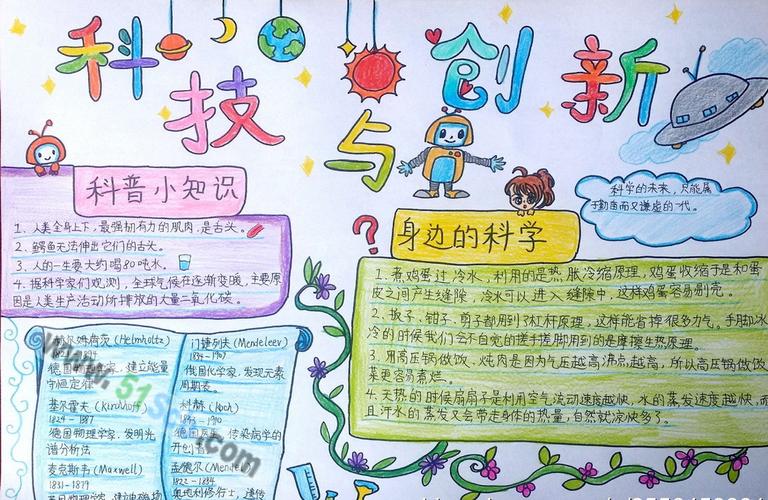 科技与创新
科普小知识
1、人类全身上下,最强韧有力的肌肉,是舌头。
2、鳄鱼无法伸出它们的舌头。
3、人的一生要大约喝80吨水。
4、据科学家们观测,全球气候在逐渐变暖,主要原
因是人类生产活动所排放的大量二氧化碳。
科学的未来,只能属
于勤奋而又谦虚的一代。
身边的科学
1.煮鸡蛋过冷水,利用的是热胀冷缩原理,鸡蛋收缩于是和蛋
皮之间产生缝隙,冷水可以进入缝隙中,这样鸡蛋容易剥壳。
2.扳子、钳子、剪子都用到了杠杆原理,这样能省掉很多力气。手脚冰
冷的时候我们会不自觉的搓手搓脚用到的是摩擦生热原理.
3.用高压锅做饭、炖肉是因为气压越高沸点越高,所以高压锅做饭
菜更容易煮烂。
4.天热的时候扇扇子是利用空气流动速度越快,水的蒸发速度越快,而
且汗水的蒸发又会带走身体的热量,自然就凉快多了。
赫尔姆荷茨(Helmholtz)
德国 学家,建立能量
守恒定律
基尔霍夫(Kirchhoff)
1824-1887
德国物理学家,发明光
谱分析法
麦克斯韦(Maxwell)
1831-1879
门捷列夫(Mendeleev)
1834-1907
俄国化学家,发现元素
周期表。
科赫(Koch)
1843-1910
德国医 ,传染病学的
开创者
孟德尔(Mendel)
1822-1884
奥地利修行士,遗传